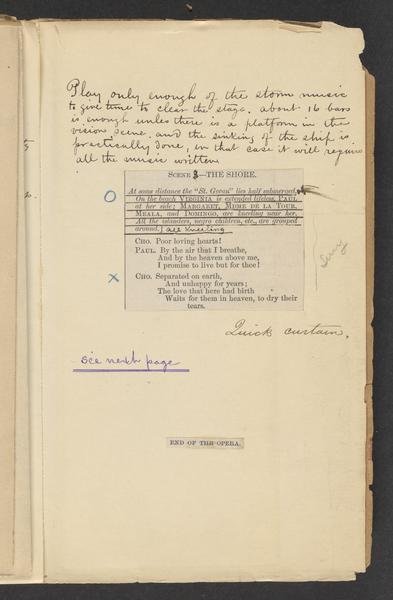 Play only enough of the storm music
to give time to clear the stage. about 16 bars
is enough unles there is a platform in the
vision scene. and the sinking of the ship is
practically done, in that case it will require
all the music written
SCENE 3—THE SHORE.
At some distance the "St. Geran" lies half submerged.
On the beach VIRGINIA is extended lifeless, PAUL
at her side; MARGARET, MDME DE LA TOUR,
MEALA, and DOMINGO, are kneeling near her,
All the islanders, negro children, etc., are grouped
around. all kneeling
CHO. Poor loving hearts!
PAUL. By the air that I breathe,
And by the heaven above me,
I promise to live but for thee!
CHO. Separated on earth,
And unhappy for years;
The love that here had birth
Waits for them in heaven, to dry their
tears.
Quick curtain.
see next page
END OF THE OPERA.